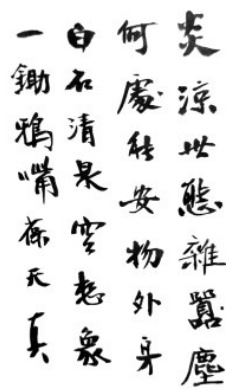 炎涼世態雜囂塵
何處能安物外身
白石清泉空想象
一鋤鴉嘴葆天真